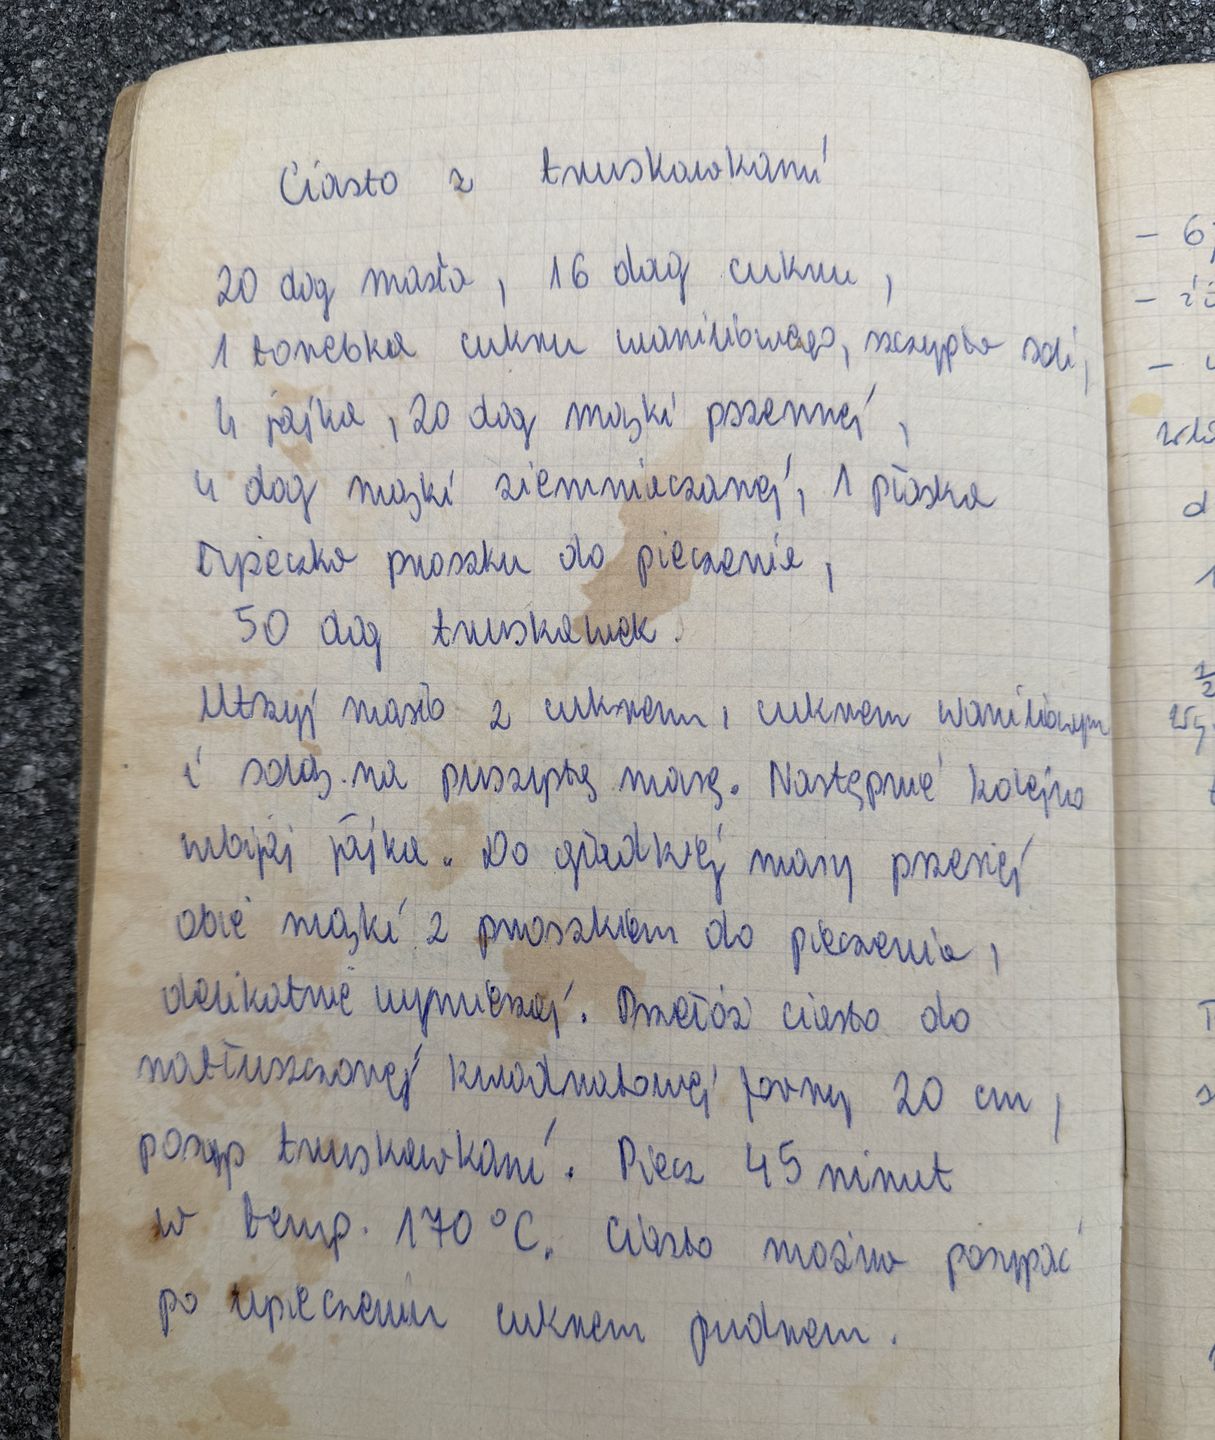 Ciasto z truskawkami
20 dag masła, 16 dag cukru,
1 torebka cukru waniliowego, szczypta soli,
4 jajka, 20 dag mąki pszennej,
4 dag mąki ziemniaczanej, 1 płaska
łyżeczka proszku do pieczenia,
50 dag truskawek.
Utrzyj masło z cukrem, cukrem waniliowym
i solą na puszystą masę. Następnie kolejno
wbijaj jajka. Do gładkiej masy przesiej
obie mąki z proszkiem do pieczenia,
delikatnie wymieszaj. Przełóż ciasto do
natłuszczonej kwadratowej formy 20 cm,
posyp truskawkami. Piecz 45 minut
w temp. 170 °C. Ciasto można posypać
po upieczeniu cukrem pudrem.
- 6
-
-
d
1